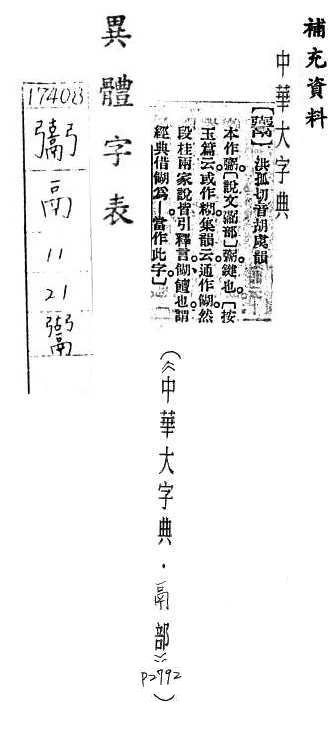 補充資料
中華大字典
洪孤切音胡虞韻
本作 〔說文䰜部〕 鍵也〔按
玉篇云或作糊集韻云通作餬然
段桂兩家說皆引釋言餬饘也謂
經典借餬爲—當作此字〕
(《中華大字典·鬲部》 )
異體字表
鬲
11
21